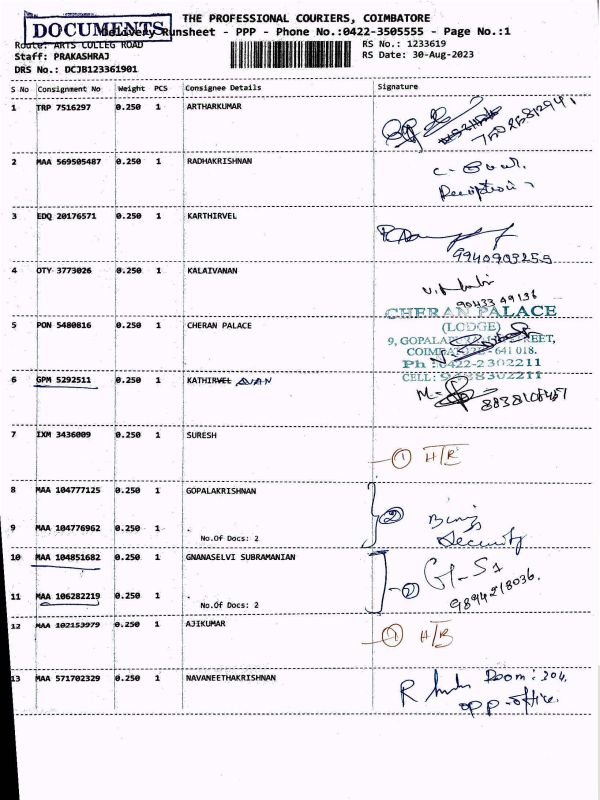 THE PROFESSIONAL COURIERS, COIMBATORE
DOCUMENTS
Delivery Runsheet - PPP - Phone No.:0422-3505555 - Page No.:1
Route: ARTS COLLEG ROAD
RS No.: 1233619
Staff: PRAKASHRAJ
RS Date: 30-Aug-2023
DRS No.: DCJB123361901
S No Consignment No Weight PCS Consignee Details Signature
1 TRP 7516297 0.250 1 ARTHARKUMAR
2 MAA 569505487 0.250 1 RADHAKRISHNAN
Reception
3 EDQ 20176571 0.250 1 KARTHIRVEL
9940903255
4 OTY 3773026 0.250 1 KALAIVANAN
90433 49136
CHERAN PALACE
5 PON 5480816 0.250 1 CHERAN PALACE
(LODGE)
9, GOPALAPURAM STREET,
COIMBATORE - 641 018.
Ph : 0422-2302211
6 GPM 5292511 0.250 1 KATHIRVEL AVAN
8838108467
7 IXM 3436009 0.250 1 SURESH
1 H/R
8 MAA 104777125 0.250 1 GOPALAKRISHNAN
2
9 MAA 104776962 0.250 1 .
No.Of Docs: 2
Security
10 MAA 104851682 0.250 1 GNANASELVI SUBRAMANIAN
2 G-S1
11 MAA 106282219 0.250 1 .
No.Of Docs: 2
9894218036.
12 MAA 102153979 0.250 1 AJIKUMAR
1 H/B
13 MAA 571702329 0.250 1 NAVANEETHAKRISHNAN
R Room: 304,
opp-office.